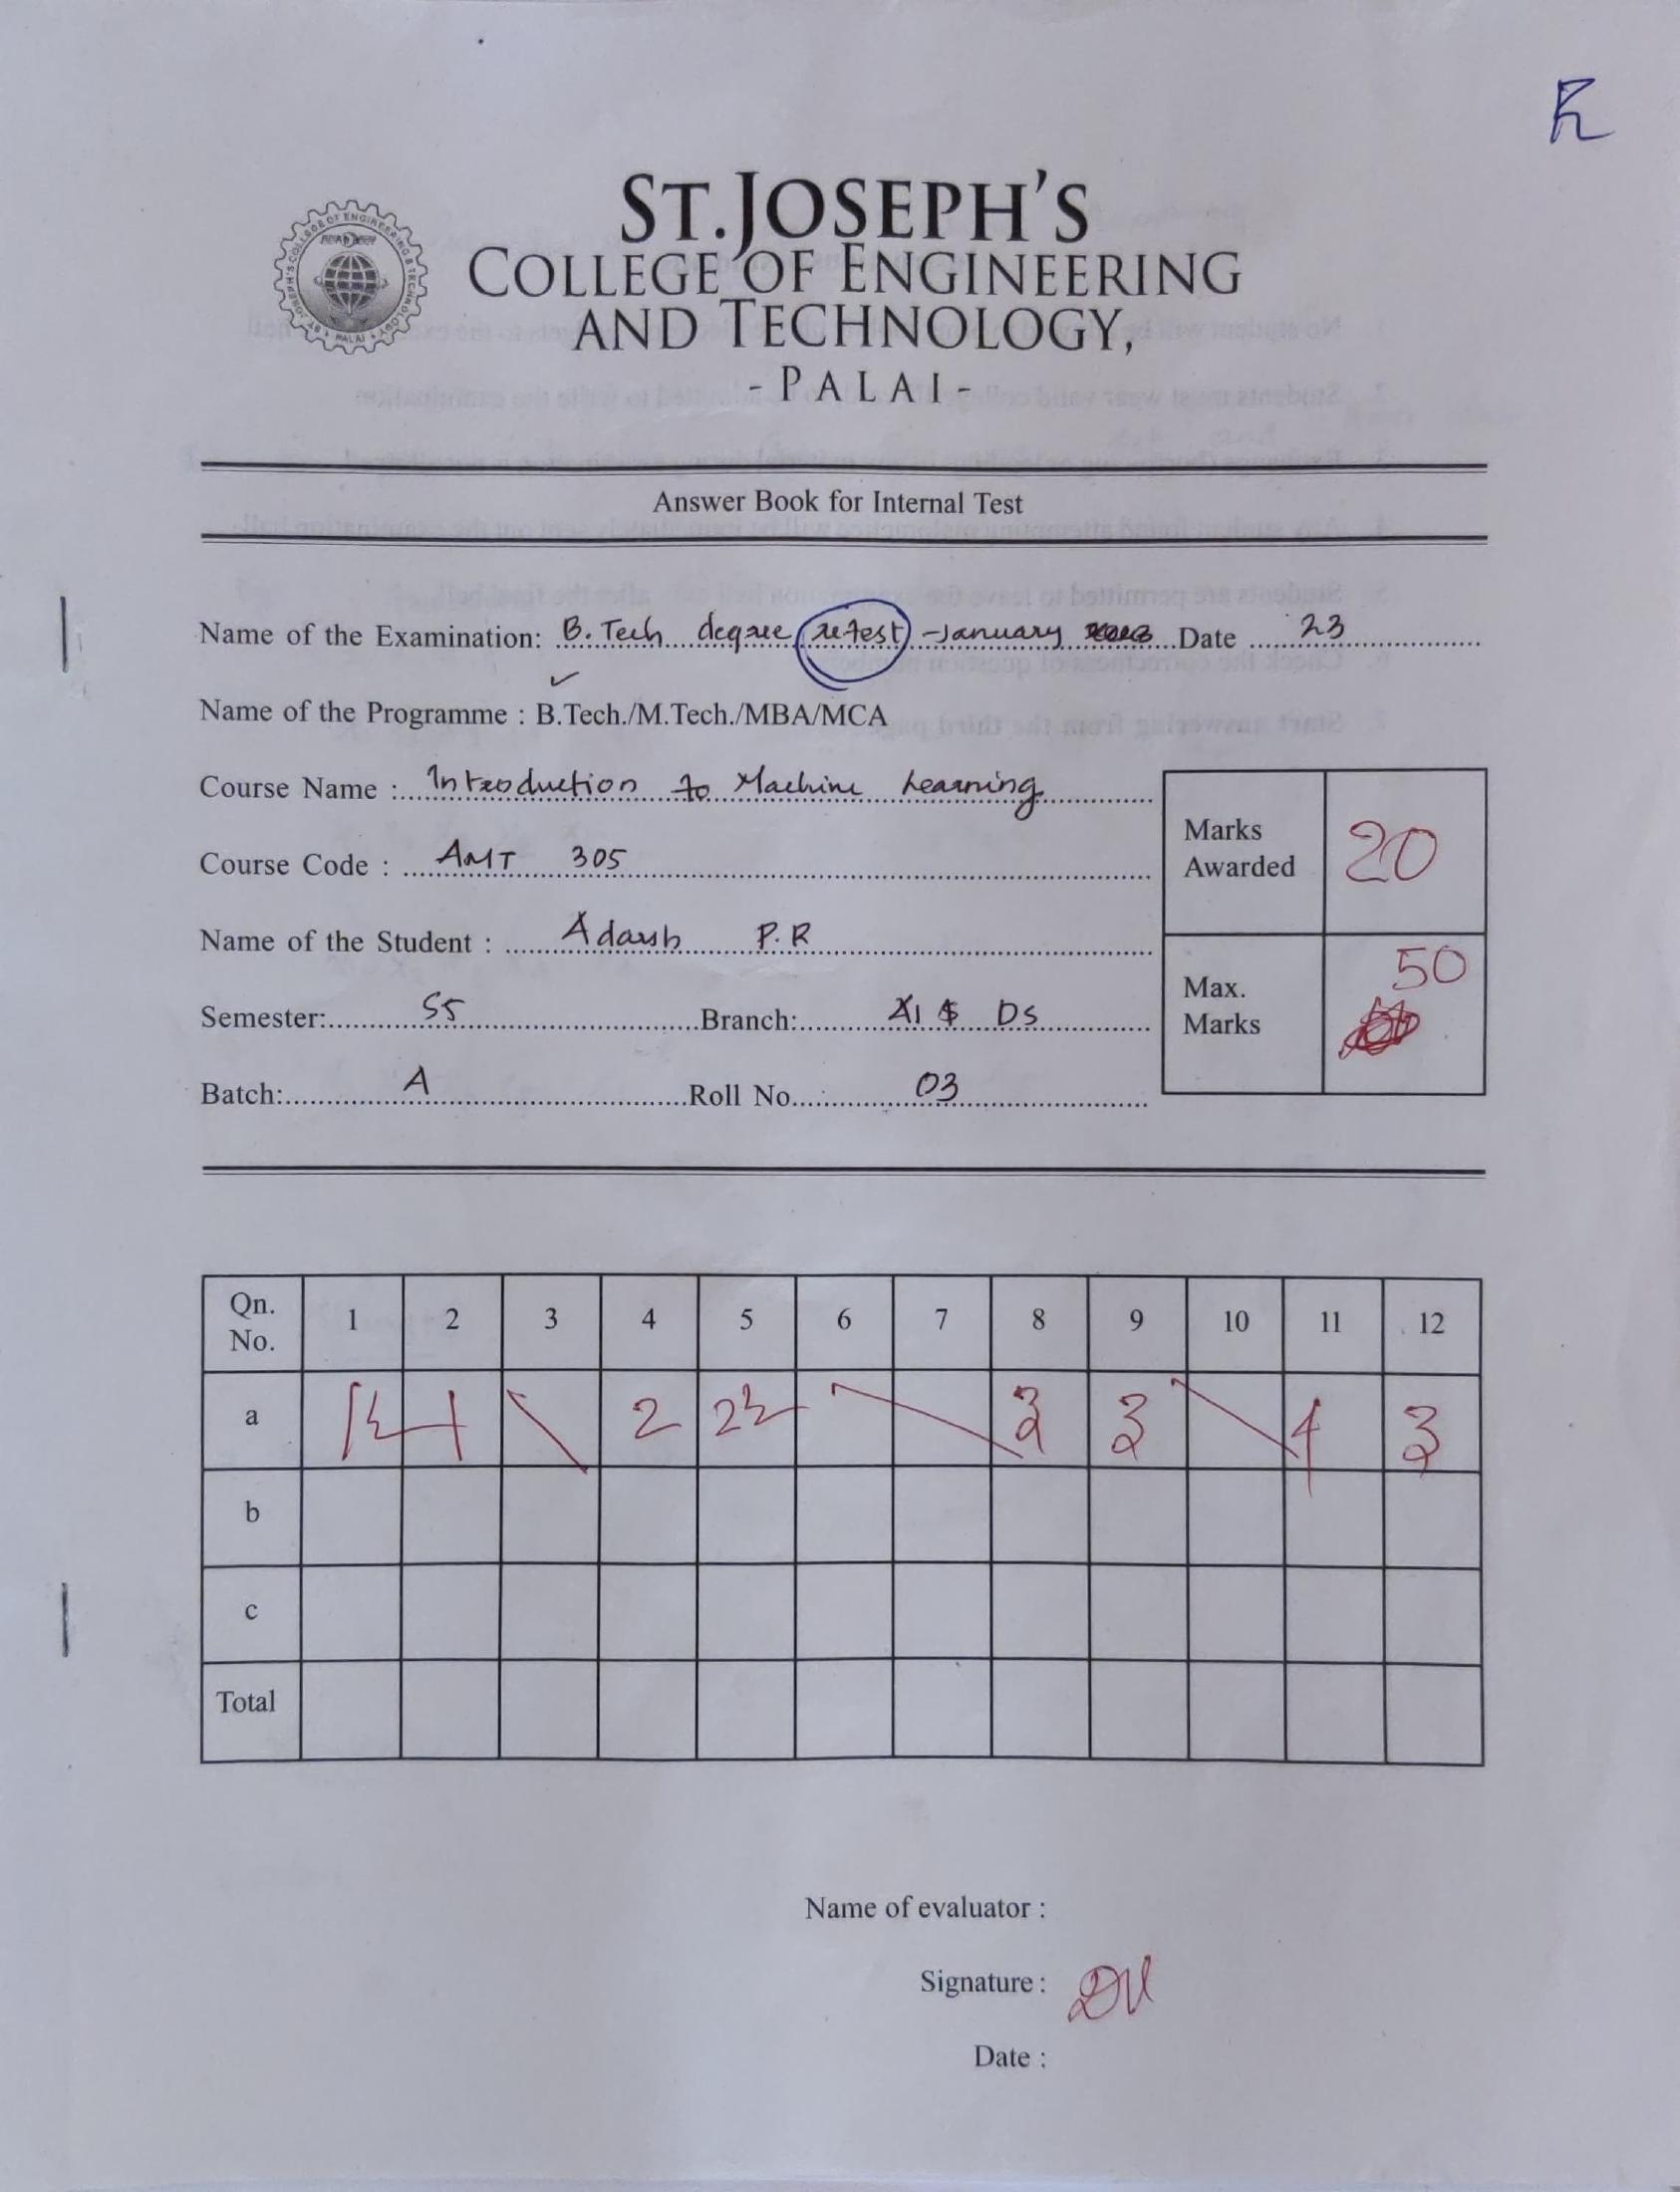 ST.JOSEPH'S
COLLEGE OF ENGINEERING
AND TECHNOLOGY,
- PALAI -
Answer Book for Internal Test
Name of the Examination: B. Tech degree retest - January Date 23
Name of the Programme : B.Tech./M.Tech./MBA/MCA
Course Name : Introduction to Machine Learning
Course Code : AMT 305
Name of the Student : Adarsh P.R
Semester: S5 Branch: AI & DS
Batch: A Roll No. 03
Marks Awarded 20
Max. Marks 50
Qn. No. 1 2 3 4 5 6 7 8 9 10 11 12
a 1½ 1 2 2½ 3 3 4 3
b
c
Total
Name of evaluator :
Signature :
Date :